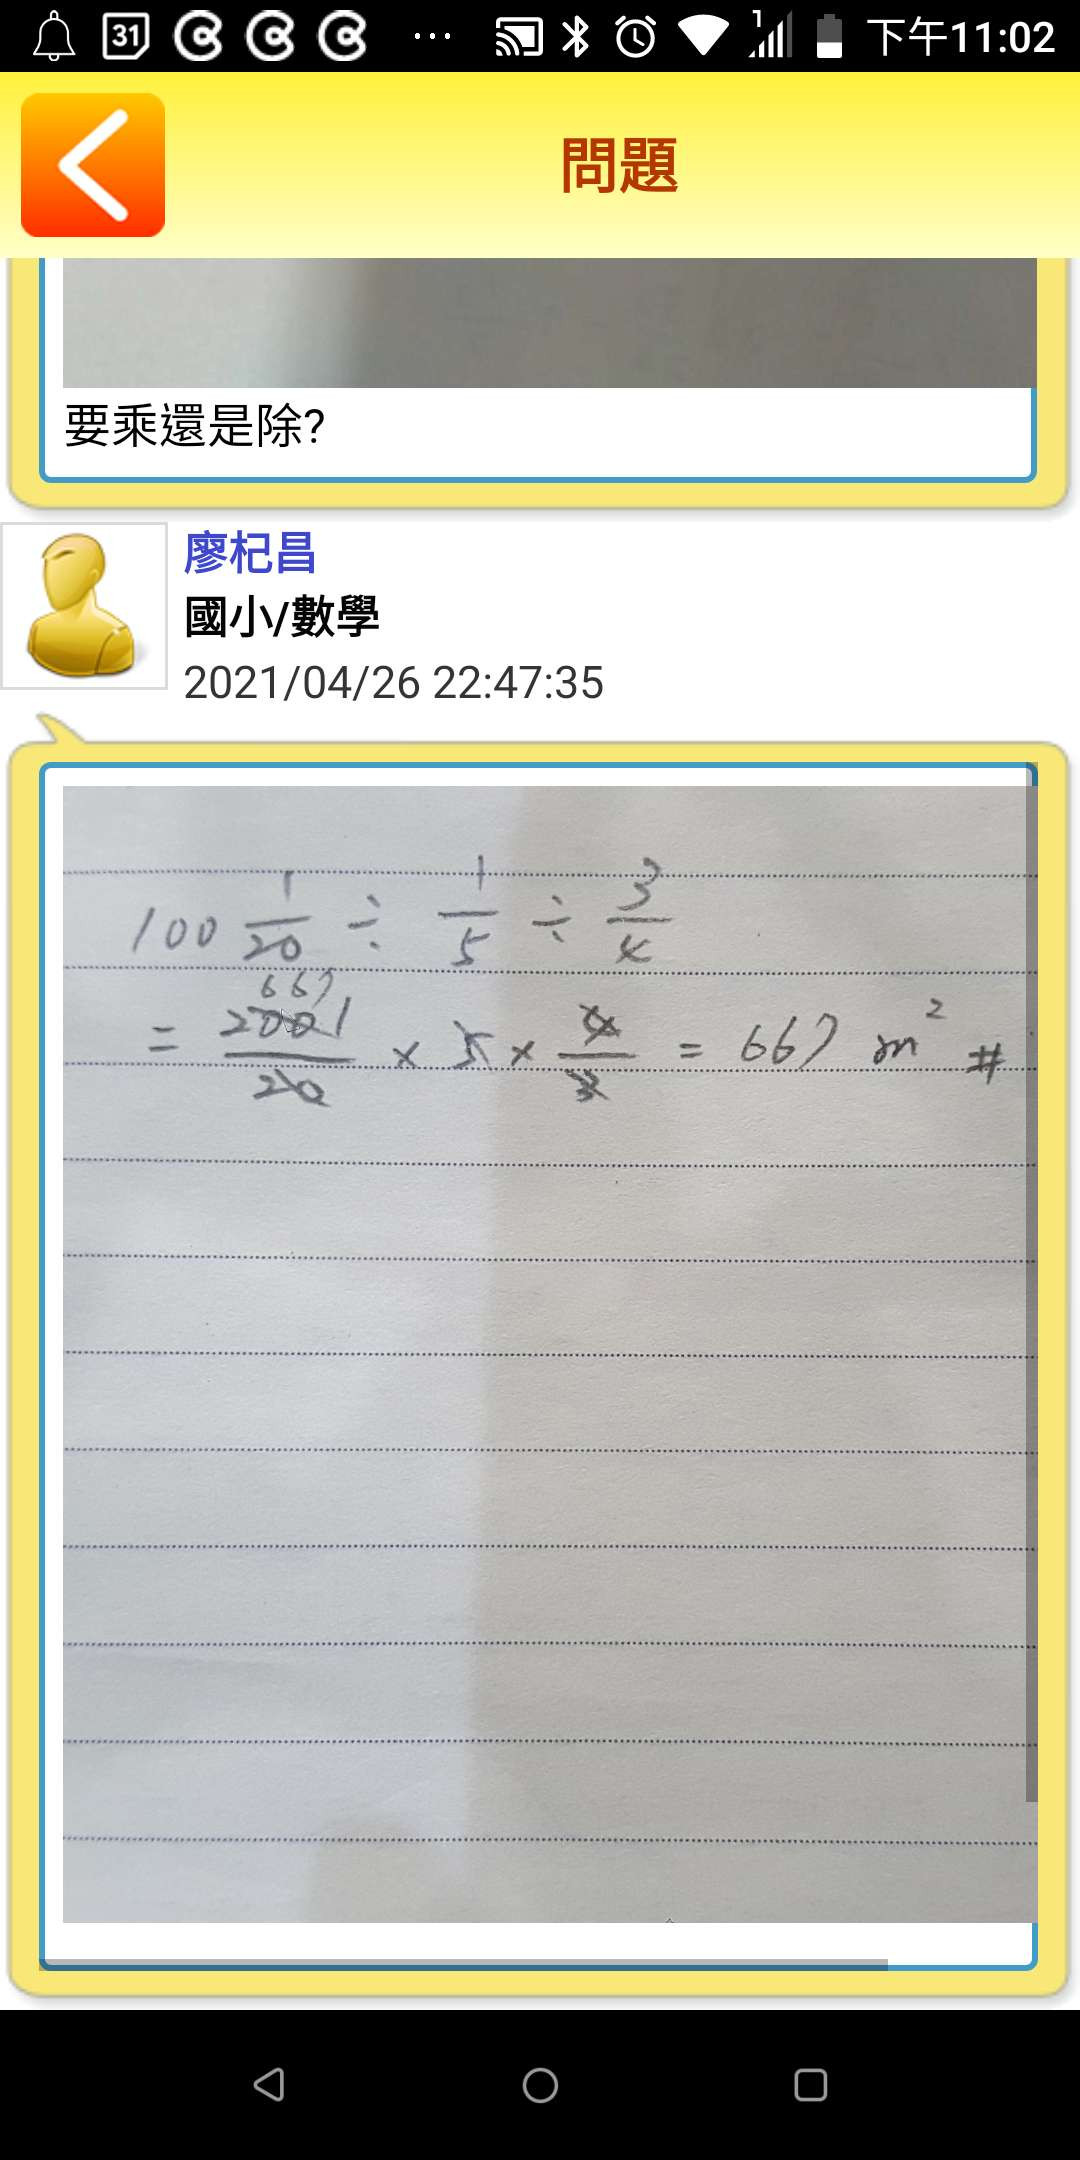 31 ... 1 下午11:02
問題
要乘還是除?
廖杞昌
國小/數學
2021/04/26 22:47:35
100 1/20 ÷ 1/5 ÷ 3/4
667
= 2001/20 × 5 × 4/3 = 667 m² #